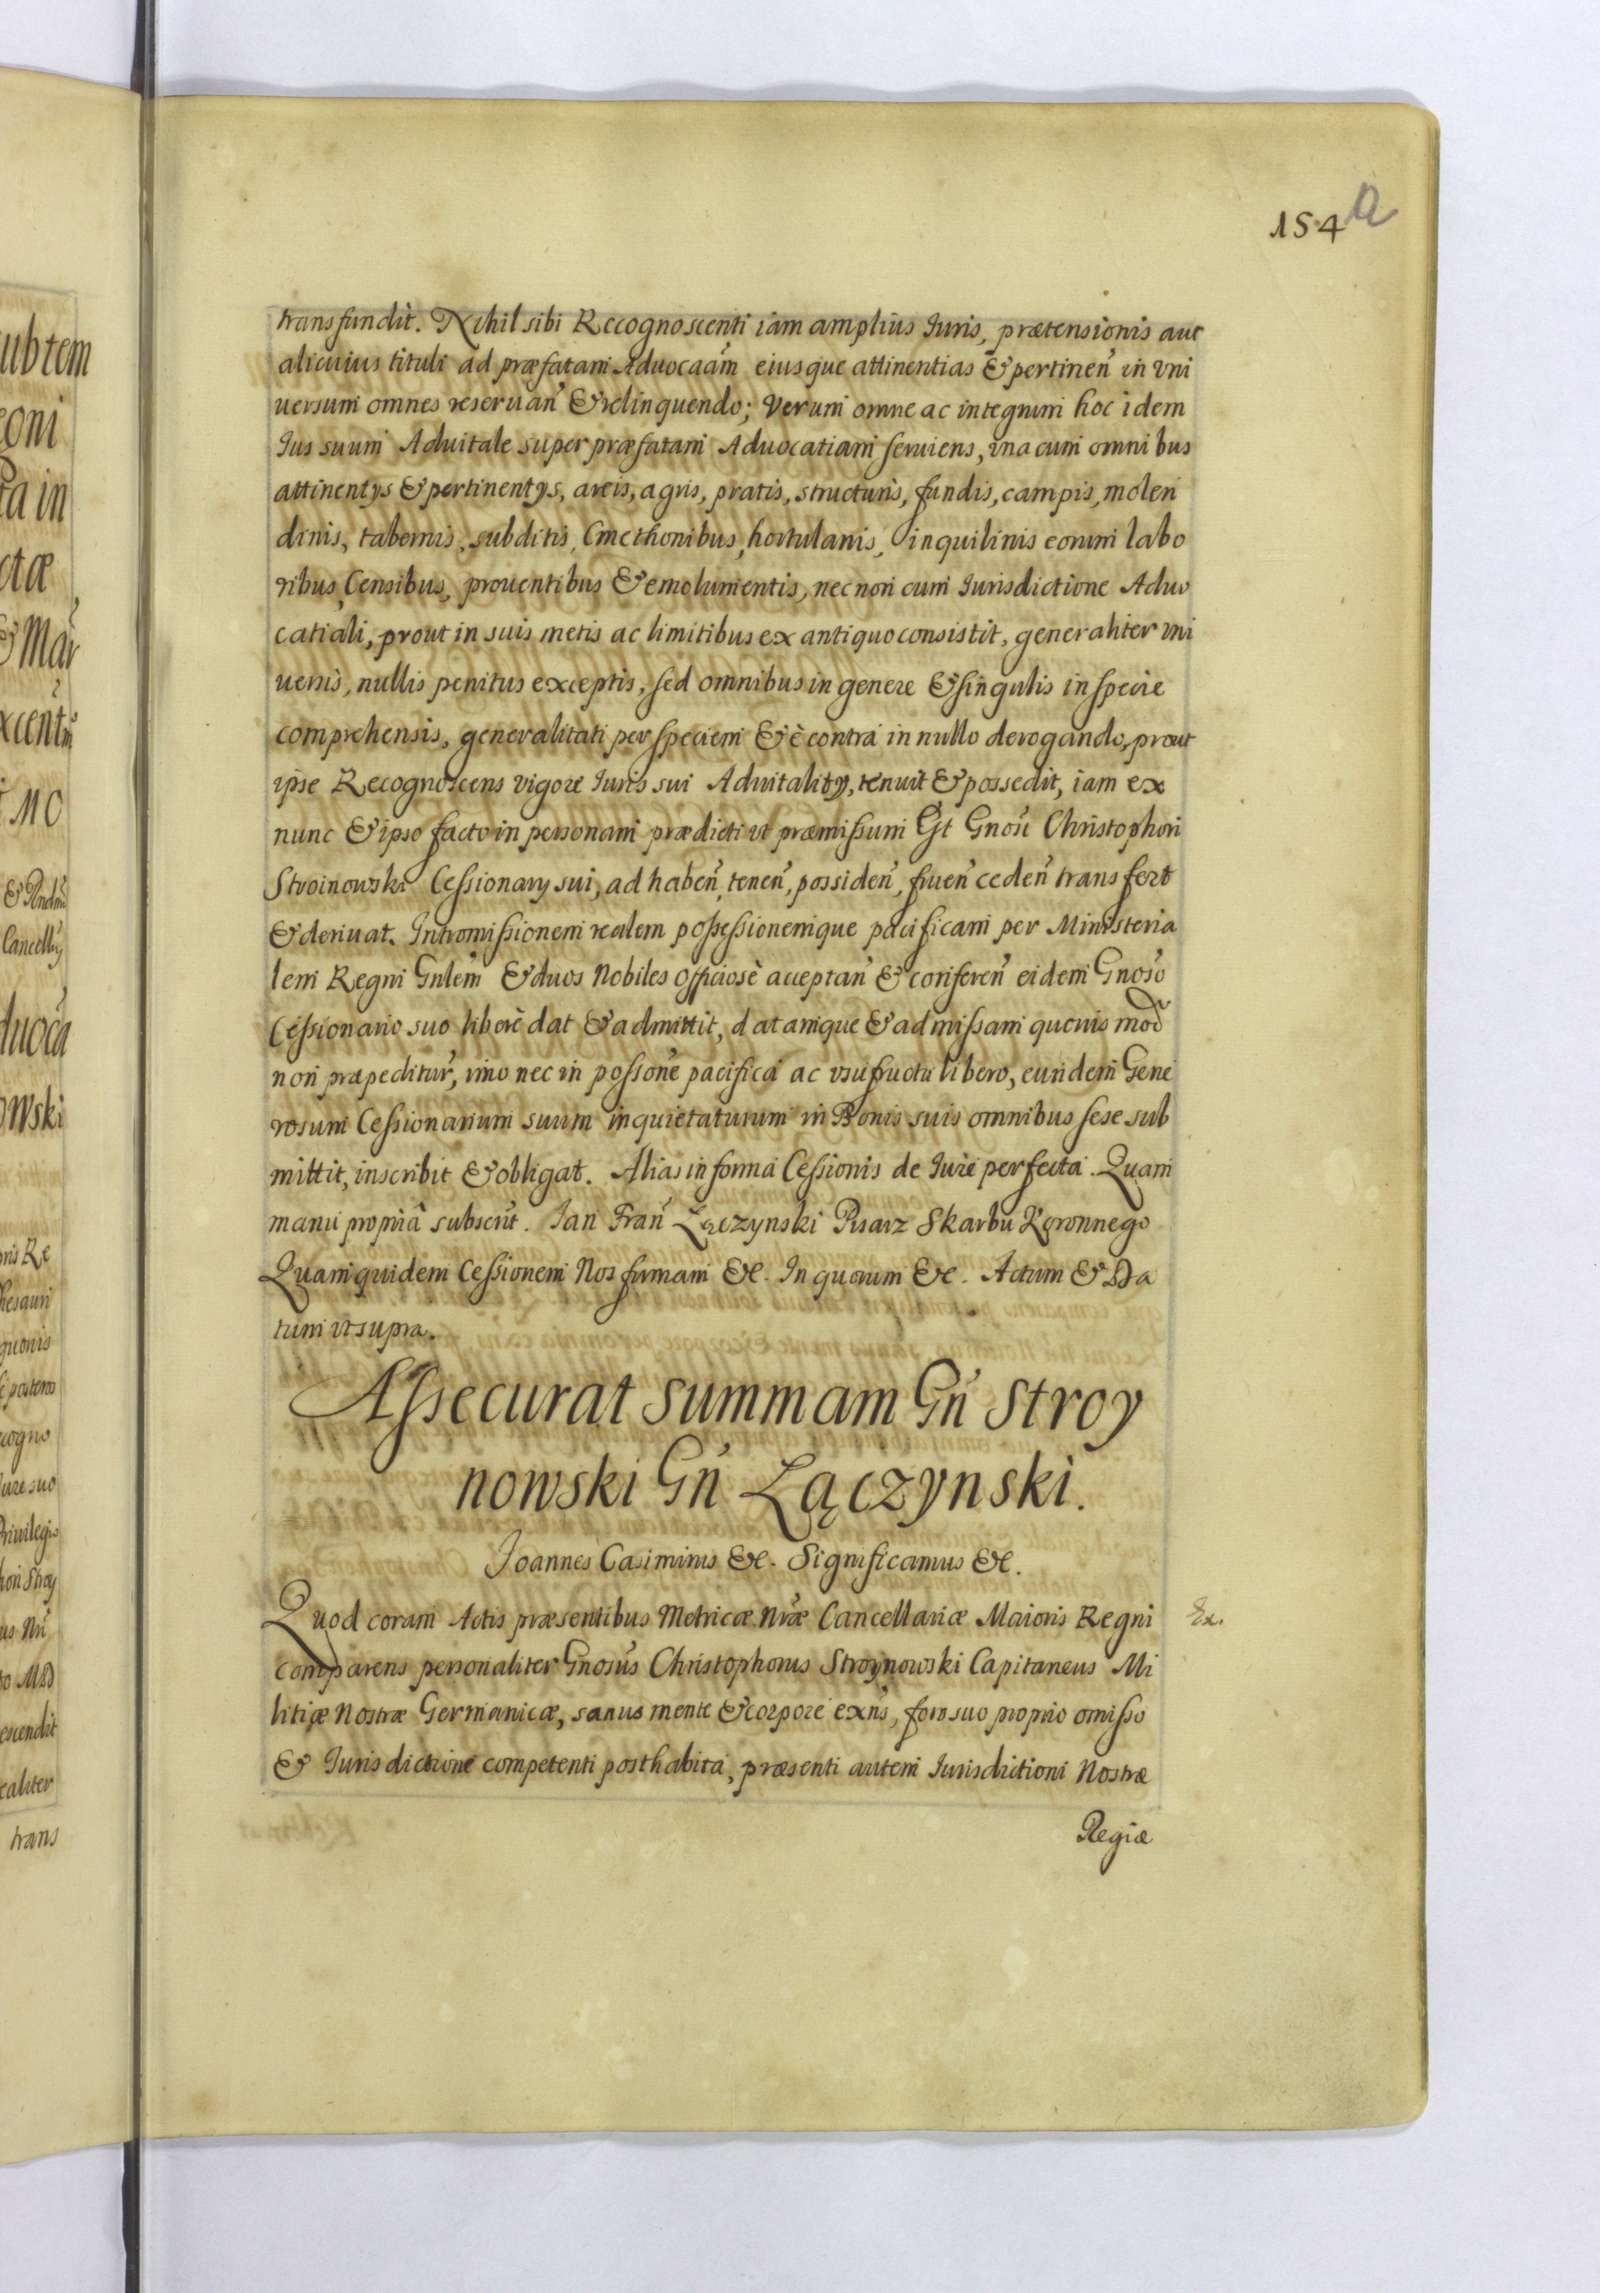 154 a
transfundit. Nihil sibi Recognoscenti iam amplius Iuris, prætensionis aut
alicuius tituli ad præfatam Aduocaãm eiusque attinentias & pertineñ in vni
uersum omnes reseruañ & relinquendo; Verum omne ac integrum hoc idem
Ius suum Aduitale super præfatam Aduocatiam seruiens, vna cum omnibus
attinentijs & pertinentijs, areis, agris, pratis, structuris, fundis, campis, molen
dinis, tabernis, subditis, Cmethonibus, hortulanis, inquilinis eorum labo
ribus, Censibus, prouentibus & emolumentis, nec non cum Iurisdictione Aduo
catiali, prout in suis metis ac limitibus ex antiquo consistit, generaliter vni
uersis, nullis penitus exceptis, sed omnibus in genere & singulis in specie
comprehensis, generalitati per speciem & è contra in nullo derogando, prout
ipse Recognoscens vigore Iuris sui Aduitalitij, tenuit & possedit, iam ex
nunc & ipso facto in personam prædicti vt præmissum est Gnosi Christophori
Stroinowski Cessionarij sui, ad habeñ, teneñ, possideñ, frueñ cedeñ transfert
& deriuat. Intromissionem realem possessionemque pacificam per Ministeria
lem Regni Gnlem & duos Nobiles officiosè acceptañ & confereñ eidem Gnoso
Cessionario suo liberè dat & admittit, datamque & admissam queuis mod
non præpeditur, imo nec in possone pacifica ac vsufructu libero, eundem Gene
rosum Cessionarium suum inquietaturum in Bonis suis omnibus sese sub
mittit, inscribit & obligat. Alias in forma Cessionis de Iure perfecta. Quam
manu propriâ subscrit. Jan Frañ Łączynski Pisarz Skarbu Koronnego
Quam quidem Cessionem Nos firmam &c. In quorum &c. Actum & Da
tum vt supra.
Assecurat summam Gñ Stroy
nowski Gñ Łączynski.
Joannes Casimirus &c. Significamus &c.
Quod coram Actis præsentibus Metricæ Nræ Cancellariæ Maioris Regni
Ex.
comparens personaliter Gnosus Christophorus Stroynowski Capitaneus Mi
litiæ Nostræ Germanicæ, sanus mente & corpore exñs, foro suo proprio omisso
& Iurisdictione competenti posthabita, præsenti autem Iurisdictioni Nostræ
Regiæ
ubtem
oni
ta in
ctæ
& Mar
xcent
MC
Cancell
duoca
owski
ris Re
hesauri
quonis
cogno
ure suo
Priuilegio
hori Stroy
us
o MD
euendit
ealiter
trans